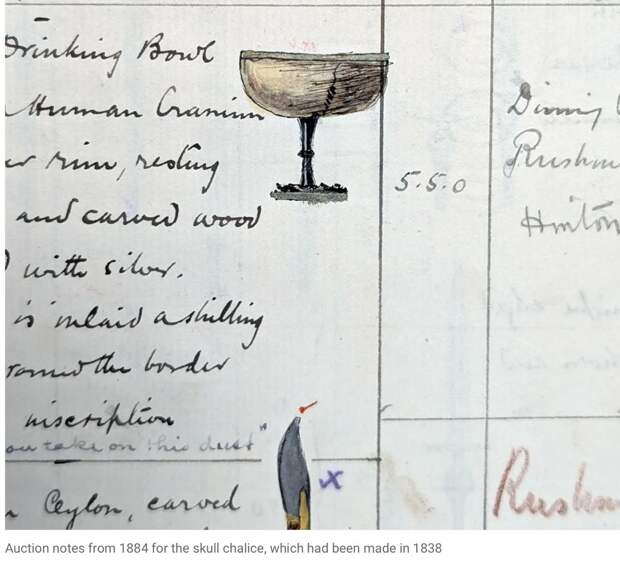 Drinking Bowl
Human Cranium
rim, resting
and carved wood
with silver.
is inlaid a shilling
round the border
inscription
you take on this dust"
Ceylon, carved
5.5.0
x
Dining
Rushm
Hinton
Rushm
Auction notes from 1884 for the skull chalice, which had been made in 1838